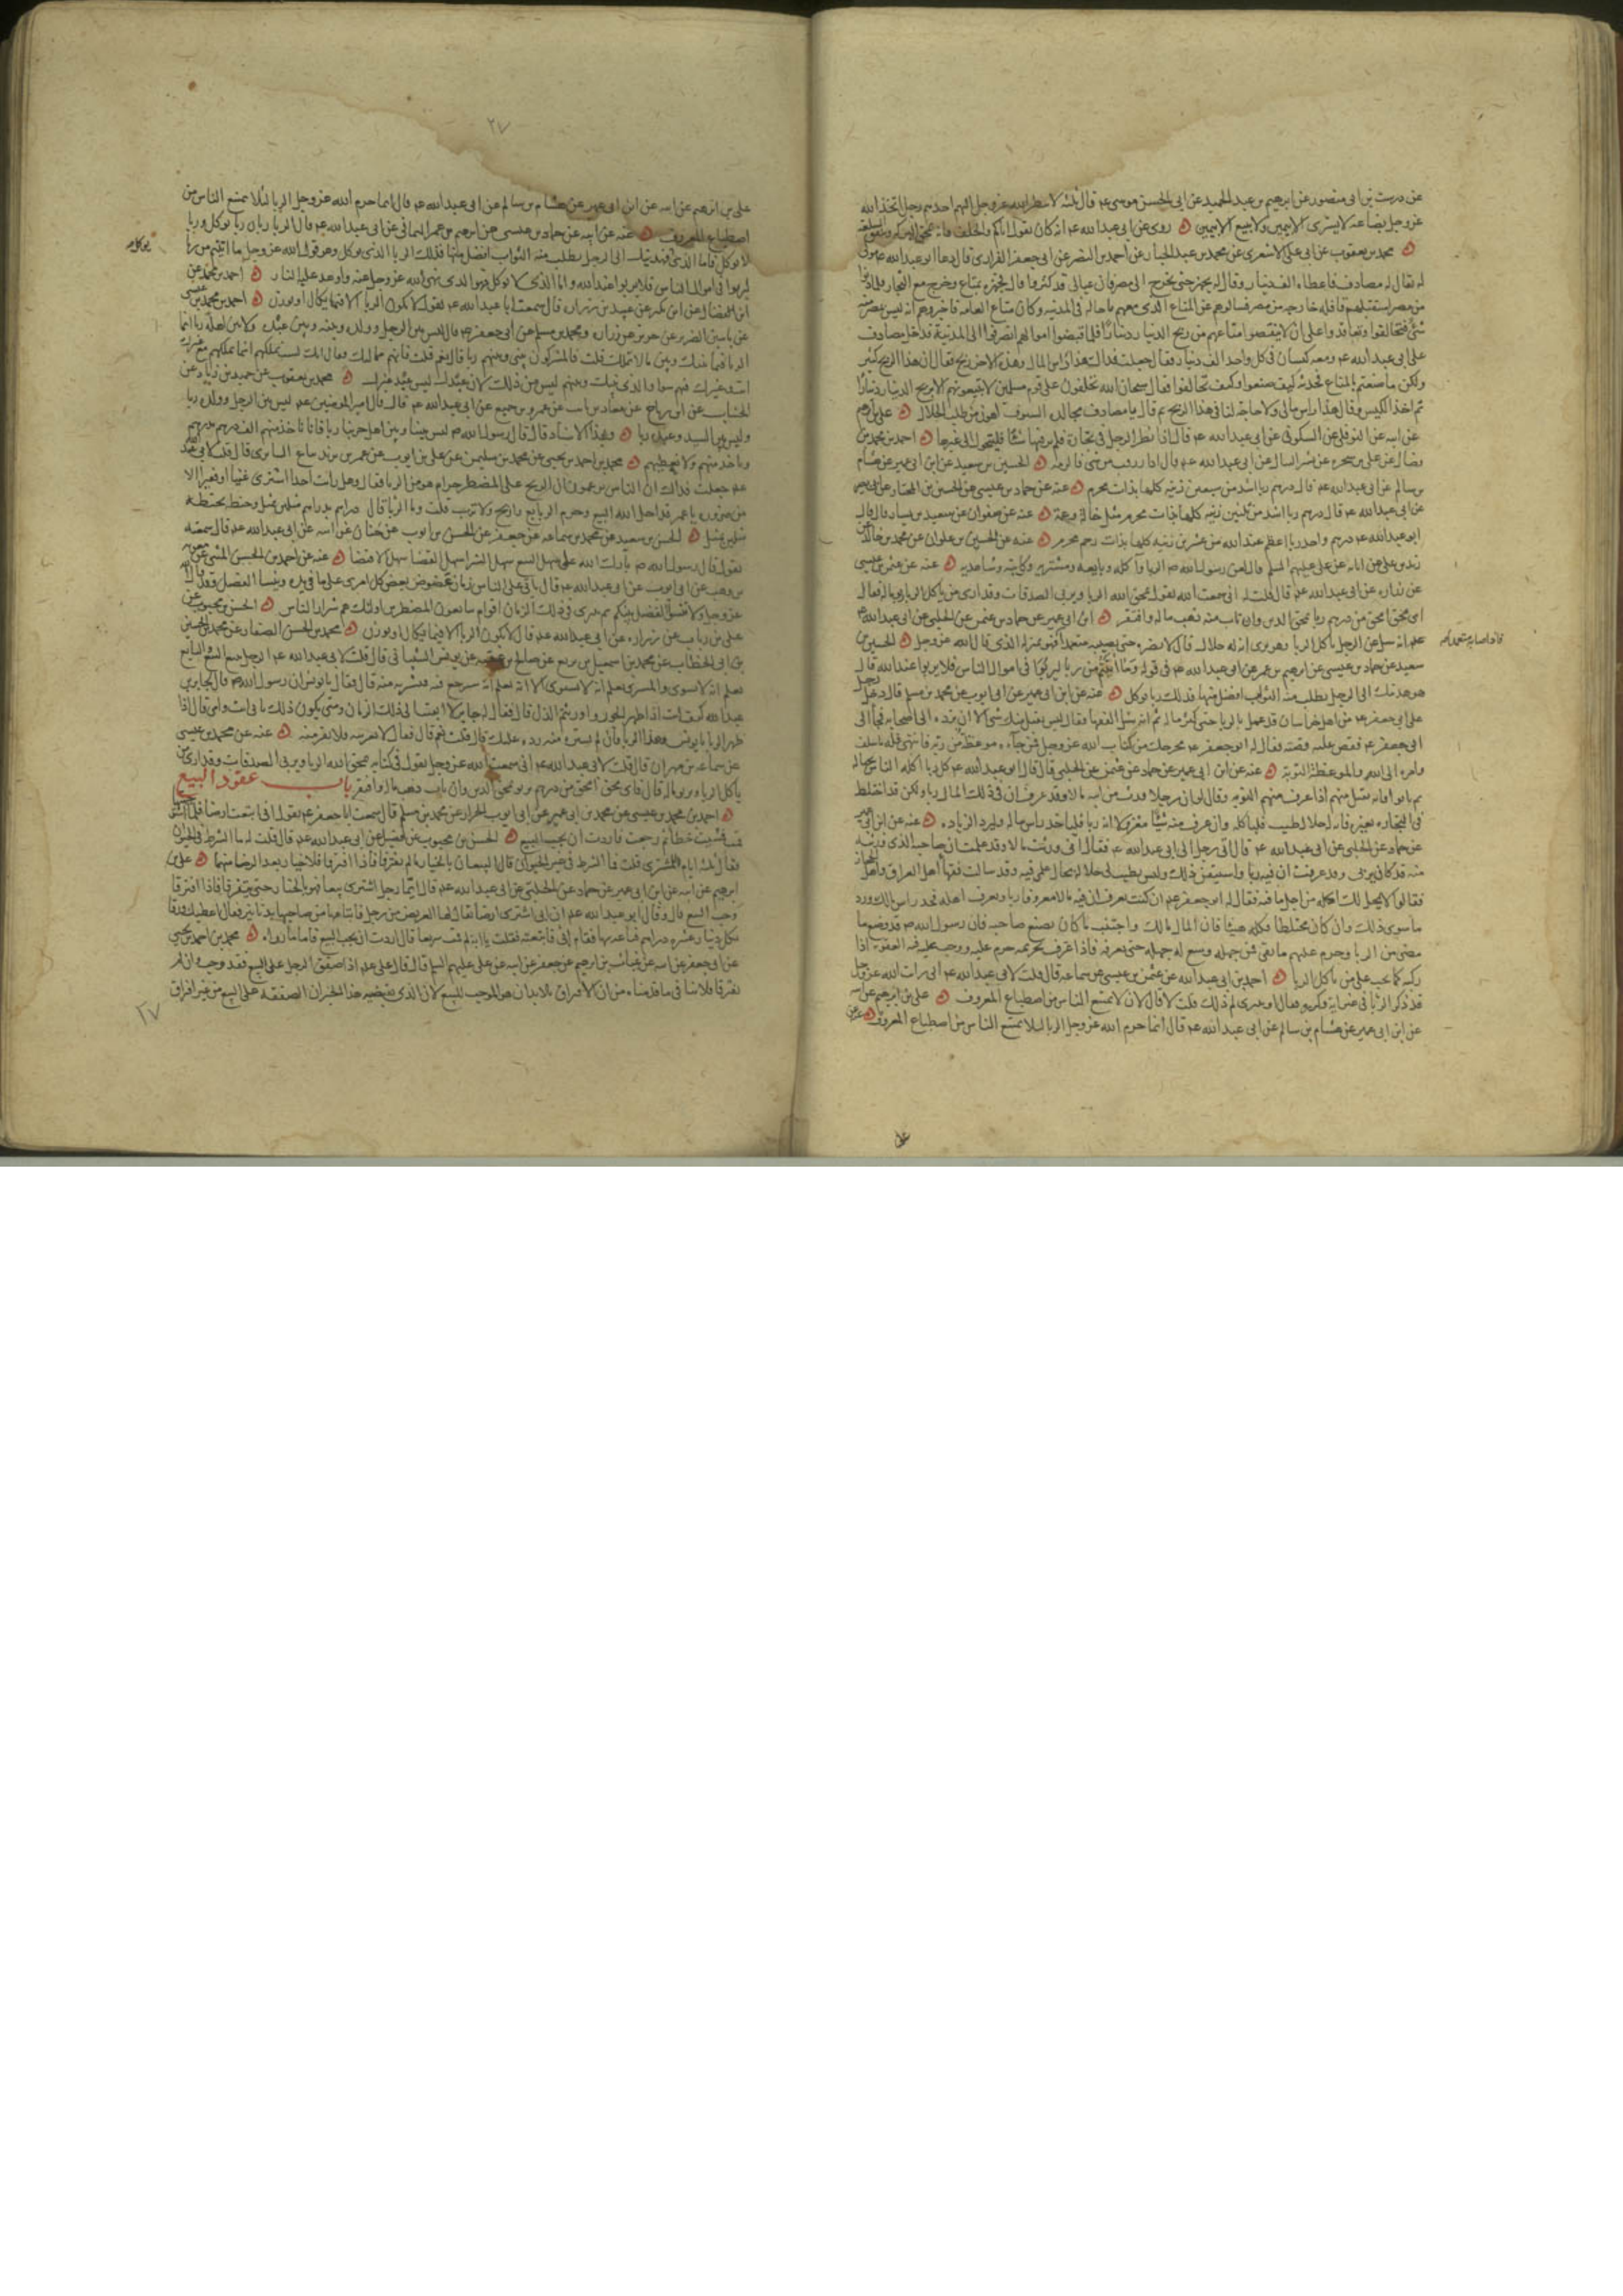 عن درست بن ابى منصور عن ابرهيم بن عبد الحميد عن ابى الحسن موسى عم قال ثلثة لا ينظر الله عز وجل اليهم احدهم رجل اتخذ الله
عز وجل بضاعة لا يشترى الا بيمين ولا يبيع الا بيمين روى عن ابى عبد الله عم انه كان يقول اياكم والحلف فانه يمحق البركة وينفق السلعة
محمد بن يعقوب عن ابى على الاشعرى عن محمد بن عبد الجبار عن احمد بن النضر عن ابى جعفر الفزارى قال دعا ابو عبد الله عم مولى
له يقال له مصادف فاعطاه الف دينار وقال له تجهز حتى تخرج الى مصر فان عيالى قد كثروا قال فتجهز بمتاع وخرج مع التجار فلما دنوا
من مصر استقبلهم قافلة خارجة من مصر فسالوهم عن المتاع الذى معهم ما حاله فى المدينة وكان متاع العامة فاخبروهم انه ليس بمصر منه
شئ فتحالفوا وتعاقدوا على ان لا ينقصوا متاعهم من ربح الدينار دينارا فلما قبضوا اموالهم انصرفوا الى المدينة فدخل مصادف
على ابى عبد الله عم ومعه كيسان فى كل واحد الف دينار فقال جعلت فداك هذا راس المال وهذا الاخر ربح فقال ان هذا الربح كثير
ولكن ما صنعتم بالمتاع فحدثه كيف صنعوا وكيف تحالفوا فقال سبحان الله تحلفون على قوم مسلمين لا تبيعونهم الا بربح الدينار دينارا
ثم اخذ الكيس وقال هذا راس مالى ولا حاجة لنا فى هذا الربح ثم قال يا مصادف مجالدة السيوف اهون من طلب الحلال على بن ابرهيم
عن ابيه عن النوفلى عن السكونى عن ابى عبد الله عم قال اذا نظر الرجل فى تجارة فلم ير فيها شيئا فليتحول الى غيرها احمد بن محمد بن
فضال عن على بن شجرة عن بشير النبال عن ابى عبد الله عم قال اذا رزقت من شئ فالزمه الحسين بن سعيد عن ابن ابى عمير عن هشام
بن سالم عن ابى عبد الله عم قال درهم ربا اشد من سبعين زنية كلها بذات محرم عنه عن حماد بن عيسى عن الحسين بن المختار عن ابى بصير
عن ابى عبد الله عم قال درهم ربا اشد من ثلثين زنية كلها بذات محرم مثل خالة وعمة عنه عن صفوان عن سعيد بن يسار قال قال
ابو عبد الله عم درهم واحد ربا اعظم عند الله من عشرين زنية كلها بذات رحم محرم عنه عن الحسين بن علوان عن عمرو بن خالد عن
زيد بن على عن ابائه عن على عليهم السلم قال لعن رسول الله ص الربا وآكله وبايعه ومشتريه وكاتبه وشاهديه عنه عن عثمن بن عيسى
عن زرارة عن ابى عبد الله عم قال قلت له انى سمعت الله يقول يمحق الله الربا ويربى الصدقات وقد ارى من ياكل الربا يربو ماله فقال
اى محق امحق من درهم ربا يمحق الدين وان تاب منه ذهب ماله وافتقر ابن ابى عمير عن حماد بن عثمن عن الحلبى عن ابى عبد الله عم
انه سئل عن الرجل ياكل الربا وهو يرى انه له حلال قال لا يضره حتى يصيبه متعمدا فهو بمنزلة الذى قال الله عز وجل الحسين بن
سعيد عن حماد بن عيسى عن ابرهيم بن عمر عن ابى عبد الله عم فى قوله وما اتيتم من ربا ليربوا فى اموال الناس فلا يربوا عند الله قال
هو هديتك الى الرجل يطلب منه الثواب افضل منها فذلك ربا يوكل عنه عن ابن ابى عمير عن ابى ايوب عن محمد بن مسلم قال دخل رجل
على ابى جعفر عم من اهل خراسان قد عمل بالربا حتى كثر ماله ثم انه سئل الفقهاء فقال ليس يقبل منك شئ الا ان ترده الى اصحابه فجاء الى
ابى جعفر عم فقص عليه قصته فقال له ابو جعفر عم مخرجك من كتاب الله عز وجل فمن جاءه موعظة من ربه فانتهى فله ما سلف
وامره الى الله والموعظة التوبة عنه عن ابن ابى عمير عن حماد بن عثمن عن الحلبى قال قال ابو عبد الله عم كل ربا اكله الناس بجهالة
ثم تابوا فانه يقبل منهم اذا عرف منهم التوبة وقال لو ان رجلا ورث من ابيه مالا وقد عرف ان فى ذلك المال ربا ولكن قد اختلط
فى التجارة بغيره فانه له حلال طيب فلياكله وان عرف منه شيئا معزولا انه ربا فلياخذ راس ماله وليرد الزيادة عنه عن ابن ابى عمير
عن حماد عن الحلبى عن ابى عبد الله عم قال اتى رجل الى ابى عبد الله عم فقال انى ورثت مالا وقد علمت ان صاحبه الذى ورثته
منه قد كان يربى وقد عرفت ان فيه ربا واستيقن ذلك وليس يطيب لى حلاله لحال علمى فيه وقد سالت فقهاء اهل العراق واهل الحجاز
فقالوا لا يحل لك اكله من اجل ما فيه فقال له ابو جعفر عم ان كنت تعرف ان فيه مالا معروفا ربا وتعرف اهله فخذ راس مالك ورد
ما سوى ذلك وان كان مختلطا فكله هنيئا فان المال مالك واجتنب ما كان يصنع صاحبه فان رسول الله ص قد وضع ما
مضى من الربا وحرم عليهم ما بقى فمن جهله وسع له جهله حتى يعرفه فاذا عرف تحريمه حرم عليه ووجب عليه فيه العقوبة اذا
ركبه كما يجب على من ياكل الربا احمد بن ابى عبد الله عن عثمن بن عيسى عن سماعة قال قلت لابى عبد الله عم انى رايت الله عز وجل
قد ذكر الربا فى غير اية وكرره فقال اوتدرى لم ذلك قلت لا قال لان لا يمتنع الناس من اصطناع المعروف على بن ابرهيم عن ابيه
عن ابن ابى عمير عن هشام بن سالم عن ابى عبد الله عم قال انما حرم الله عز وجل الربا لئلا يمتنع الناس من اصطناع المعروف
٢٧
على بن ابرهيم عن ابيه عن ابن ابى عمير عن هشام بن سالم عن ابى عبد الله عم قال انما حرم الله عز وجل الربا لئلا يمتنع الناس من
اصطناع المعروف عنه عن ابيه عن حماد بن عيسى عن ابرهيم بن عمر اليمانى عن ابى عبد الله عم قال الربا ربان ربا يوكل وربا
لا يوكل فاما الذى يوكل فهديتك الى الرجل يطلب منه الثواب افضل منها فذلك الربا الذى يوكل وهو قول الله عز وجل ما اتيتم من ربا
ليربوا فى اموال الناس فلا يربوا عند الله واما الذى لا يوكل فهو الذى نهى الله عز وجل عنه واوعد عليه النار احمد بن محمد عن
ابن فضال عن ابن بكير عن عبيد بن زرارة قال سمعت ابا عبد الله عم يقول لا يكون الربا الا فيما يكال او يوزن احمد بن محمد بن عيسى
عن ياسين الضرير عن حريز عن زرارة ومحمد بن مسلم عن ابى جعفر عم قال ليس بين الرجل وولده وبينه وبين عبده ولا بين اهله ربا انما
الربا فيما بينك وبين ما لا تملك قلت فالمشركون بينى وبينهم ربا قال نعم قلت فانهم مماليك فقال انك لست تملكهم انما تملكهم مع غيرك
انت وغيرك فيهم سواء والذى بينك وبينهم ليس من ذلك لان عبدك ليس عبد غيرك محمد بن يعقوب عن حميد بن زياد عن
الخشاب عن ابن بقاح عن معاذ بن ثابت عن عمرو بن جميع عن ابى عبد الله عم قال قال امير المومنين عم ليس بين الرجل وولده ربا
وليس بين السيد وعبده ربا وبهذا الاسناد قال قال رسول الله ص ليس بيننا وبين اهل حربنا ربا فانا ناخذ منهم الف درهم بدرهم
وناخذ منهم ولا نعطيهم محمد بن احمد بن يحيى عن محمد بن سليمن عن على بن ايوب عن عمر بن يزيد بياع السابرى قال قلت لابى عبد الله
عم جعلت فداك ان الناس يزعمون ان الربح على المضطر حرام وهو من الربا فقال وهل رايت احدا اشترى غنيا او فقيرا الا
من ضرورة يا عمر قد احل الله البيع وحرم الربا بع واربح ولا ترب قلت وما الربا قال دراهم بدراهم مثلين بمثل وحنطة بحنطة
مثلين بمثل الحسن بن سعيد عن محمد بن سماعة عن جعفر عن الحسن بن ايوب عن حنان عن ابيه عن ابى عبد الله عم قال سمعته
يقول قال رسول الله ص بارك الله على سهل البيع سهل الشرا سهل القضا سهل الاقتضا عنه عن احمد بن الحسن الميثمى عن معوية
بن وهب عن ابى ايوب عن ابى عبد الله عم قال ياتى على الناس زمان عضوض يعض كل امرئ على ما فى يده وينسى الفضل وقد قال الله
عز وجل ولا تنسوا الفضل بينكم ثم ينبرى فى ذلك الزمان اقوام يبايعون المضطرين اولئك هم شرار الناس الحسن بن محبوب عن
على بن رياب عن زرارة عن ابى عبد الله عم قال لا يكون الربا الا فيما يكال او يوزن محمد بن الحسن الصفار عن محمد بن الحسين
بن ابى الخطاب عن محمد بن اسمعيل بن بزيع عن صالح بن عقبة عن يونس الشيبانى قال قلت لابى عبد الله عم الرجل يبيع البيع والبايع
يعلم انه لا يسوى والمشترى يعلم انه لا يسوى الا انه يعلم انه سيرجع فيه فيشتريه منه قال فقال يا يونس ان رسول الله ص قال لجابر بن
عبد الله كيف انت اذا ظهر الجور واورثتم الذل قال فقال له جابر لا ابقيت الى ذلك الزمان ومتى يكون ذلك بابى انت وامى قال اذا
ظهر الربا يا يونس وهذا الربا فان لم تشتره منه رده عليك قال قلت نعم قال فقال لا تقربنه فلا تقربنه عنه عن محمد بن عيسى
عن سماعة بن مهران قال قلت لابى عبد الله عم انى سمعت الله عز وجل يقول فى كتابه يمحق الله الربا ويربى الصدقات وقد ارى من
ياكل الربا يربو ماله قال فاى محق امحق من درهم ربو يمحق الدين وان تاب ذهب ماله وافتقر باب عقود البيع
احمد بن محمد بن عيسى عن محمد بن ابى عمير عن ابى ايوب الخزاز عن محمد بن مسلم قال سمعت ابا جعفر عم يقول انى ابتعت ارضا فلما استوجبتها
قمت فمشيت خطا ثم رجعت فاردت ان يجب البيع الحسن بن محبوب عن فضيل عن ابى عبد الله عم قال قلت له ما الشرط فى الحيوان
فقال ثلثة ايام للمشترى قلت فما الشرط فى غير الحيوان قال البيعان بالخيار ما لم يفترقا فاذا افترقا فلا خيار بعد الرضا منهما على بن
ابرهيم عن ابيه عن ابن ابى عمير عن حماد عن الحلبى عن ابى عبد الله عم قال ايما رجل اشترى بيعا فهو بالخيار حتى يفترقا فاذا افترقا
وجب البيع قال وقال ابو عبد الله عم ان ابى اشترى ارضا يقال لها العريض من رجل فابتاعها من صاحبها بدنانير فقال اعطيك ورقا
بكل دينار عشرة دراهم فباعه بها فقام ابى فاتبعته فقلت يا ابه لم قمت سريعا قال اردت ان يجب البيع محمد بن احمد بن يحيى
عن ابى جعفر عن ابيه عن غياث بن ابرهيم عن جعفر عن ابيه عن على عليهم السلم قال قال على عم اذا صفق الرجل على البيع فقد وجب وان لم
يفترقا فلا ينافى ما قدمناه من ان الافتراق بالابدان هو الموجب للبيع لان الذى يقتضيه هذا الخبر ان الصفقة على البيع من غير افتراق
٢٧